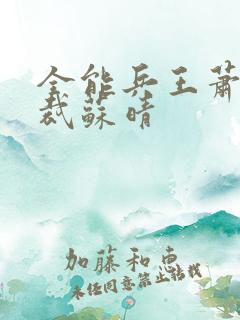 全能兵王蕭
裁蘇晴
加藤和惠
未经同意禁止转载